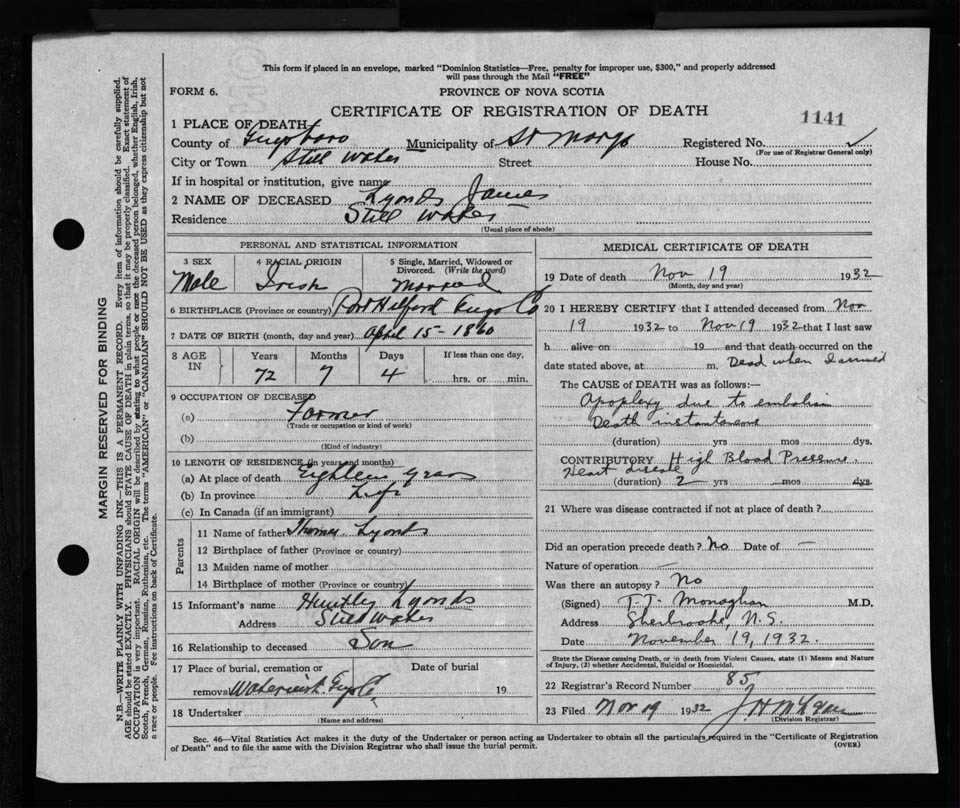 This form if placed in an envelope, marked "Dominion Statistics—Free, penalty for improper use, $300," and properly addressed
will pass through the Mail "FREE"
FORM 6.
PROVINCE OF NOVA SCOTIA
CERTIFICATE OF REGISTRATION OF DEATH
1141
1 PLACE OF DEATH
County of Guysboro Municipality of St Marys Registered No.
(For use of Registrar General only)
City or Town Still Water Street House No.
If in hospital or institution, give name
2 NAME OF DECEASED Lyonds James
Residence Still Water
(Usual place of abode)
PERSONAL AND STATISTICAL INFORMATION
3 SEX 4 RACIAL ORIGIN 5 Single, Married, Widowed or
Divorced. (Write the word)
Male Irish Married
6 BIRTHPLACE (Province or country) Port Hilford Guys Co
7 DATE OF BIRTH (month, day and year) April 15-1860
8 AGE IN Years Months Days If less than one day,
72 7 4 hrs. or min.
9 OCCUPATION OF DECEASED
(a) Farmer
(Trade or occupation or kind of work)
(b)
(Kind of industry)
10 LENGTH OF RESIDENCE (in years and months)
(a) At place of death Eighteen years
(b) In province Life
(c) In Canada (if an immigrant)
Parents
11 Name of father Thomas Lyonds
12 Birthplace of father (Province or country)
13 Maiden name of mother
14 Birthplace of mother (Province or country)
15 Informant's name Huntley Lyonds
Address Still Water
16 Relationship to deceased Son
17 Place of burial, cremation or Date of burial
removal Guys Co 19
18 Undertaker
(Name and address)
MEDICAL CERTIFICATE OF DEATH
19 Date of death Nov 19 1932
(Month, day and year)
20 I HEREBY CERTIFY that I attended deceased from Nov
19 1932 to Nov 19 1932 that I last saw
h alive on 19 and that death occurred on the
date stated above, at m. Dead when I arrived
The CAUSE OF DEATH was as follows:—
Apoplexy due to embolism
Death instantaneous
(duration) yrs mos dys.
CONTRIBUTORY High Blood Pressure.
Heart disease
(duration) 2 yrs mos dys.
21 Where was disease contracted if not at place of death?
Did an operation precede death? No Date of —
Nature of operation —
Was there an autopsy? No
(Signed) T.T. Monaghan M.D.
Address Sherbrooke, N.S.
Date November 19, 1932.
State the Disease causing Death, or in death from Violent Causes, state (1) Means and Nature
of Injury, (2) whether Accidental, Suicidal or Homicidal.
22 Registrar's Record Number 85
23 Filed Nov 19 1932
(Division Registrar)
Sec. 46—Vital Statistics Act makes it the duty of the Undertaker or person acting as Undertaker to obtain all the particulars required in the "Certificate of Registration
of Death" and to file the same with the Division Registrar who shall issue the burial permit.
(OVER)
MARGIN RESERVED FOR BINDING
N.B.—WRITE PLAINLY WITH UNFADING INK—THIS IS A PERMANENT RECORD. Every item of information should be carefully supplied.
AGE should be stated EXACTLY. PHYSICIANS should STATE CAUSE OF DEATH in plain terms, so that it may be properly classified. Exact statement of
OCCUPATION is very important. RACIAL ORIGIN will be described by stating to what people or race the deceased person belonged, whether English, Irish,
Scotch, French, German, Russian, Ruthenian, etc. The terms "AMERICAN" or "CANADIAN" SHOULD NOT BE USED as they express citizenship but not
a race or people. See instructions on back of Certificate.